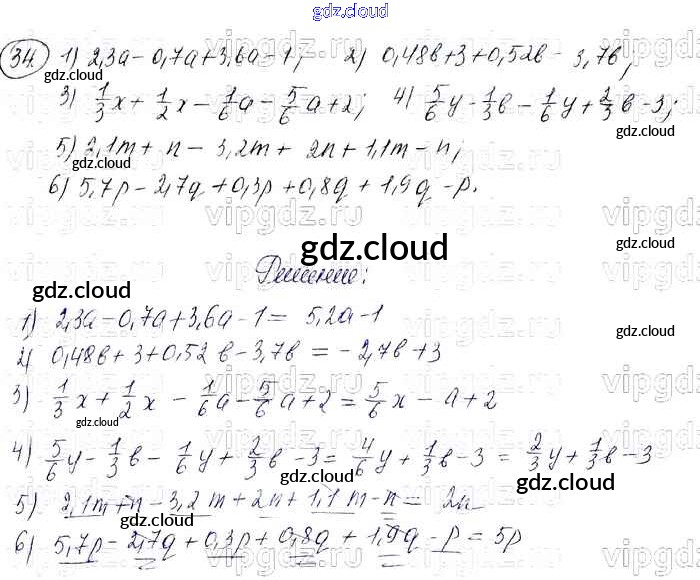 gdz.cloud
34. 1) 2,3a - 0,7a + 3,6a - 1; 2) 0,48b + 3 + 0,52b - 3,7b;
gdz.cloud
3) 1/3 x + 1/2 x - 1/6 a - 5/6 a + 2; 4) 5/6 y - 1/3 b - 1/6 y + 2/3 b - 3;
5) 2,1m + n - 3,2m + 2n + 1,1m - n;
6) 5,7p - 2,7q + 0,3p + 0,8q + 1,9q - p.
gdz.cloud
Решение:
gdz.cloud
1) 2,3a - 0,7a + 3,6a - 1 = 5,2a - 1
2) 0,48b + 3 + 0,52b - 3,7b = -2,7b + 3
3) 1/3 x + 1/2 x - 1/6 a - 5/6 a + 2 = 5/6 x - a + 2
4) 5/6 y - 1/3 b - 1/6 y + 2/3 b - 3 = 4/6 y + 1/3 b - 3 = 2/3 y + 1/3 b - 3
5) 2,1m + n - 3,2m + 2n + 1,1m - n = 2n
6) 5,7p - 2,7q + 0,3p + 0,8q + 1,9q - p = 5p
gdz.cloud
vipgdz.ru